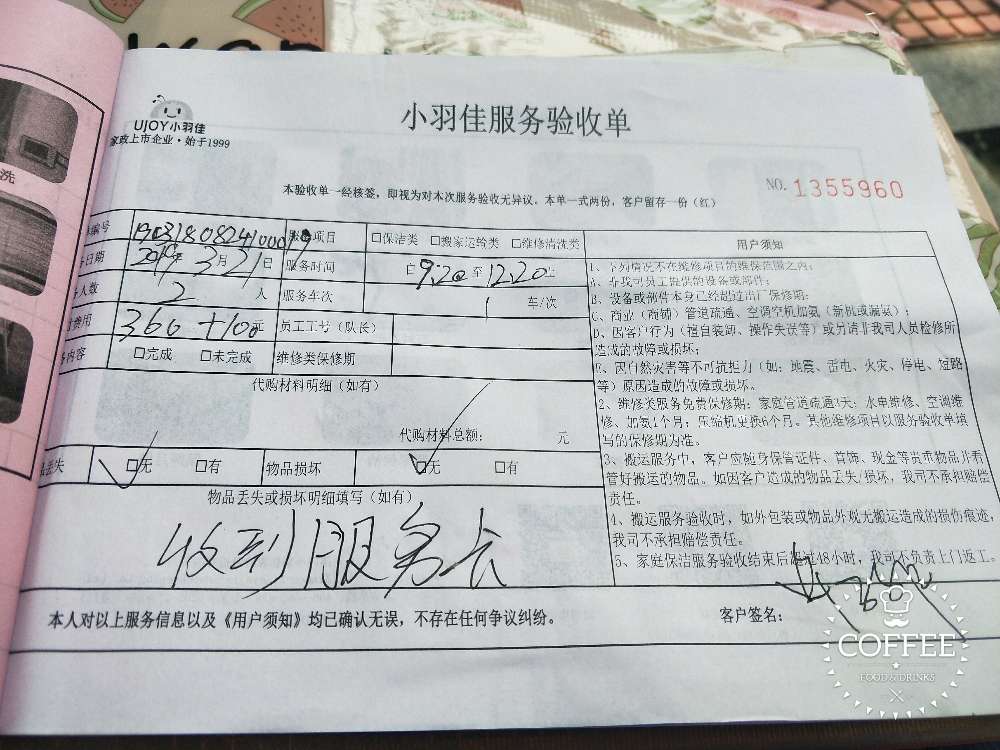 UJOY小羽佳
家政上市企业·始于1999
小羽佳服务验收单
NO. 1355960
本验收单一经核签，即视为对本次服务验收无异议。本单一式两份，客户留存一份（红）
洗
编号
服务项目 □保洁类 □搬家运输类 □维修清洗类
用户须知
日期 2019年3月21日 服务时间 自9:20至12:20止
人数 2人 服务车次 1车/次
费用 360+10元 员工工号（队长）
内容 □完成 □未完成 维修类保修期
代购材料明细（如有）
代购材料总额： 元
丢失 □无 □有 物品损坏 □无 □有
物品丢失或损坏明细填写（如有）
收到服务卡
1、下列情况不在维修项目的维保范围之内：
A、非我司员工提供的设备或部件；
B、设备或部件本身已经超过出厂保修期；
C、商业（商铺）管道疏通、空调空机加氨（新机或漏氨）；
D、因客户行为（擅自装卸、操作失误等）或另请非我司人员检修所
造成的故障或损坏；
E、因自然灾害等不可抗拒力（如：地震、雷电、火灾、停电、短路
等）原因造成的故障或损坏。
2、维修类服务免费保修期：家庭管道疏通3天；水电维修、空调维
修、加氨1个月；压缩机更换6个月。其他维修项目以服务验收单填
写的保修期为准。
3、搬运服务中，客户应随身保管证件、首饰、现金等贵重物品并看
管好搬运的物品。如因客户造成的物品丢失/损坏，我司不承担赔偿
责任。
4、搬运服务验收时，如外包装或物品外观无搬运造成的损伤痕迹，
我司不承担赔偿责任。
5、家庭保洁服务验收结束后超过48小时，我司不负责上门返工。
本人对以上服务信息以及《用户须知》均已确认无误，不存在任何争议纠纷。
客户签名：
COFFEE
FOOD & DRINKS